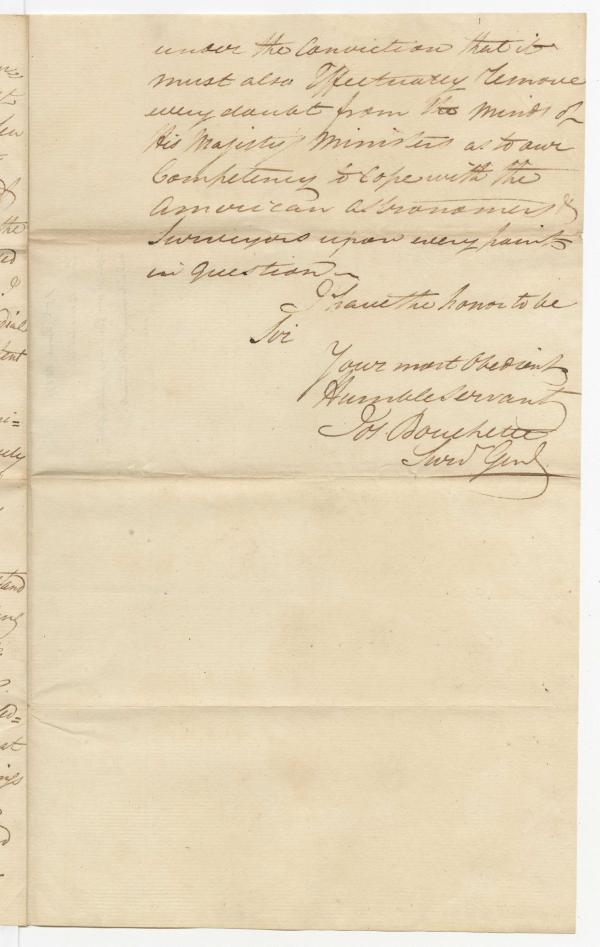 under the Conviction that it
must also Effectually remove
every doubt from the minds of
His Majesty's Ministers as to our
Competency to Cope with the
American astronomers &
Surveyors upon every point
in question
I have the honor to be
Sir
Your most Obedient
Humble Servant
Jos. Bouchette
Survr Genl
the
&
tent
uly
tand
at